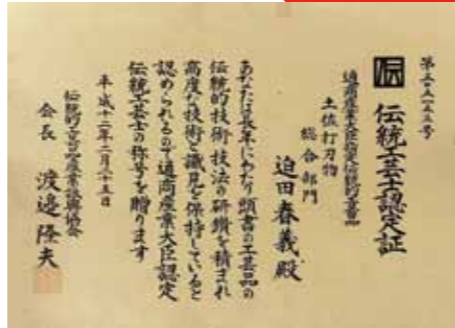 伝
伝統工芸士認定証
通商産業大臣指定伝統的工芸品
土佐打刃物
総合部門
迫田春義殿
あなたは長年にわたり頭書の工芸品の
伝統的技術・技法の研鑽を積まれ
高度な技術と識見を保持していると
認められるので通商産業大臣認定
伝統工芸士の称号を贈ります
平成十二年二月二十五日
会長 渡邉隆夫